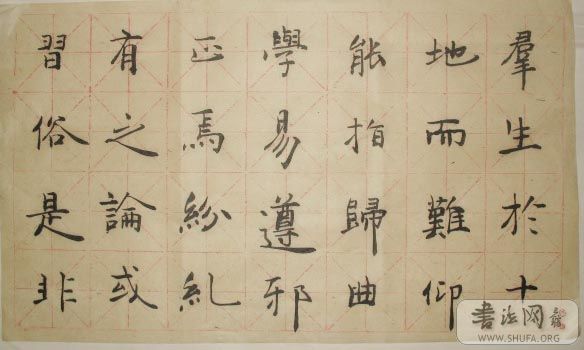 羣生於十
地而難仰
能指歸曲
學易遵邪
正焉紛糺
有之論或
習俗是非
書法网
WWW.SHUFA.ORG